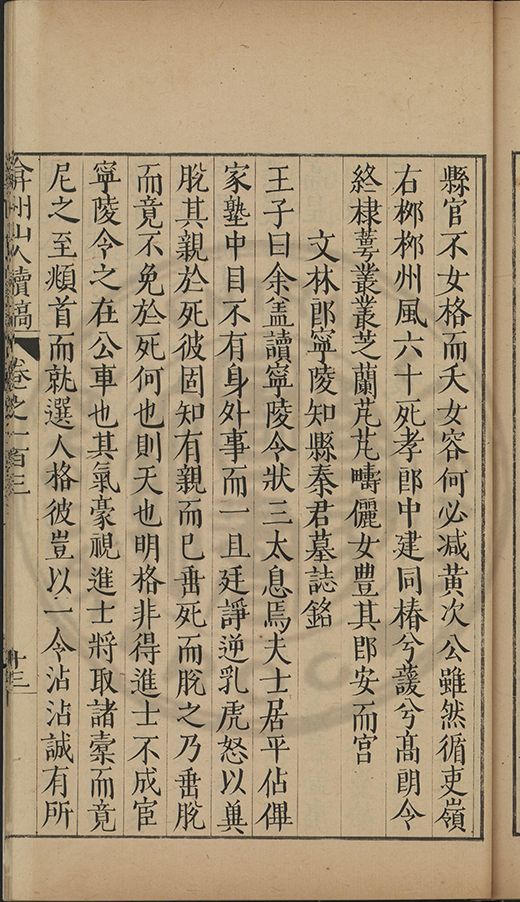 縣官不女格而夭女容何必减黄次公雖然循吏嶺
右桞桞州風六十死孝郎中建同椿兮蘐兮髙朗令
終棣蕚叢叢芝蘭芃芃疇儷女豊其郎安而官
文林郎寧陵知縣秦君墓誌銘
王子曰余盖讀寧陵令狀三太息焉夫士居平佔俾
家塾中目不有身外事而一旦廷諍逆乳虎怒以兾
脫其親於死彼固知有親而已垂死而脫之乃垂脫
而竟不免於死何也則天也明格非得進士不成宦
寧陵令之在公車也其氣豪視進士將取諸槖而竟
尼之至頫首而就選人格彼豈以一令沾沾誠有所
弇州山人續稿 卷之一百三 十三